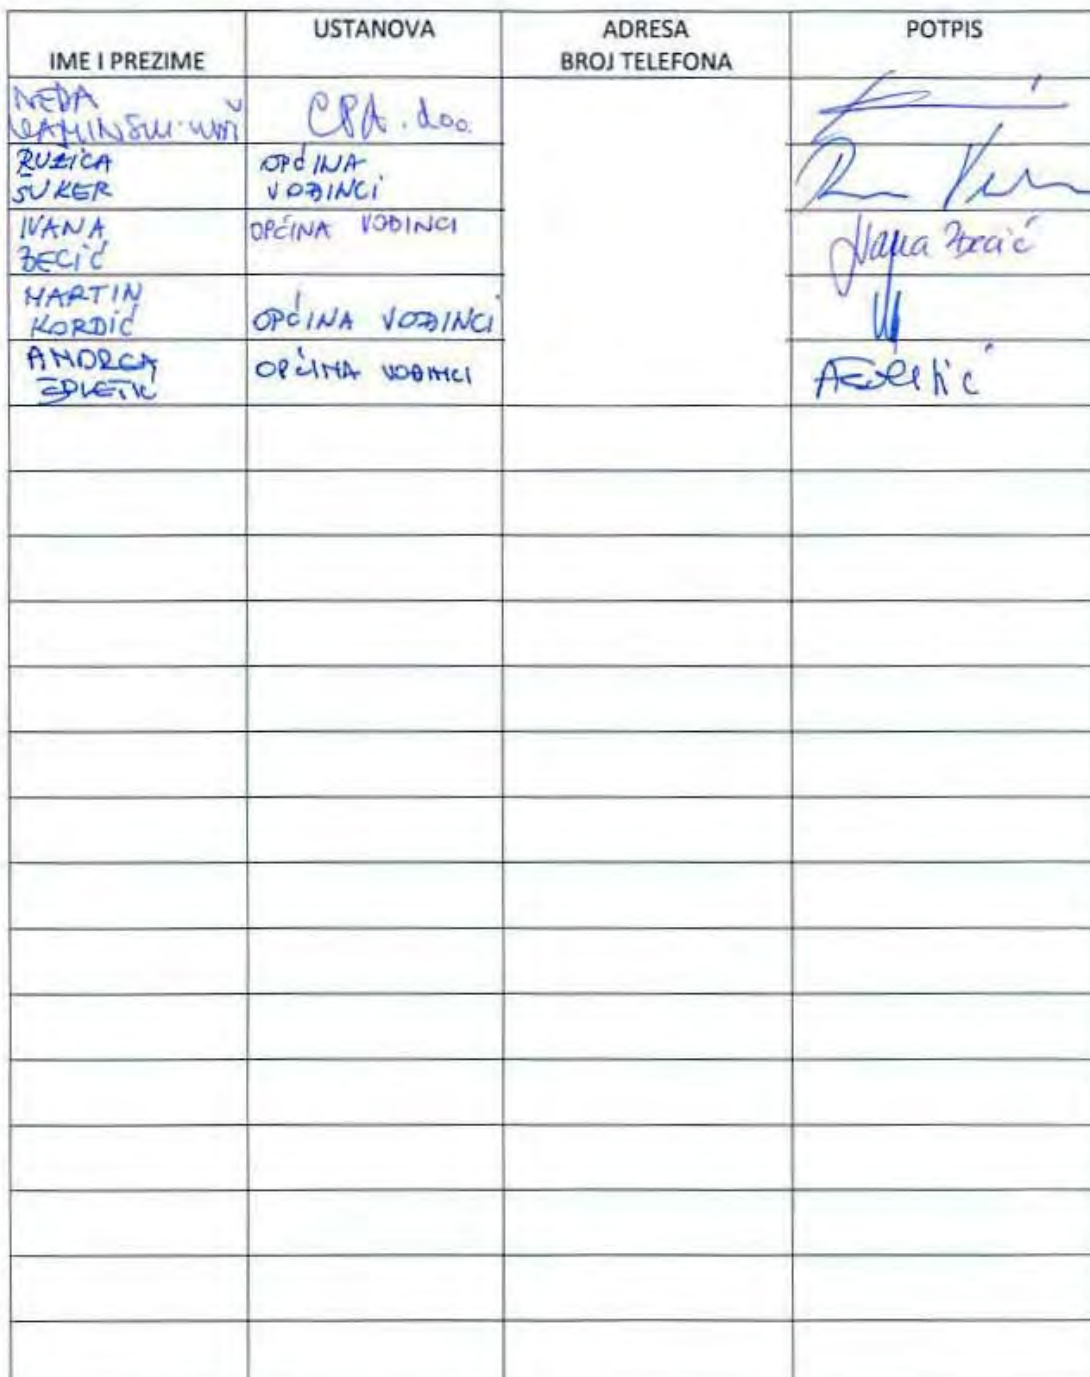 IME I PREZIME
USTANOVA
ADRESA
BROJ TELEFONA
POTPIS
NEDA
CPA. doo.
RUŽICA
ŠUKER
OPĆINA
VOĐINCI
IVANA
ZECIĆ
OPĆINA VOĐINCI
Ivana Zecić
MARTIN
KORDIĆ
OPĆINA VOĐINCI
ANDREA
OPĆINA VOĐINCI